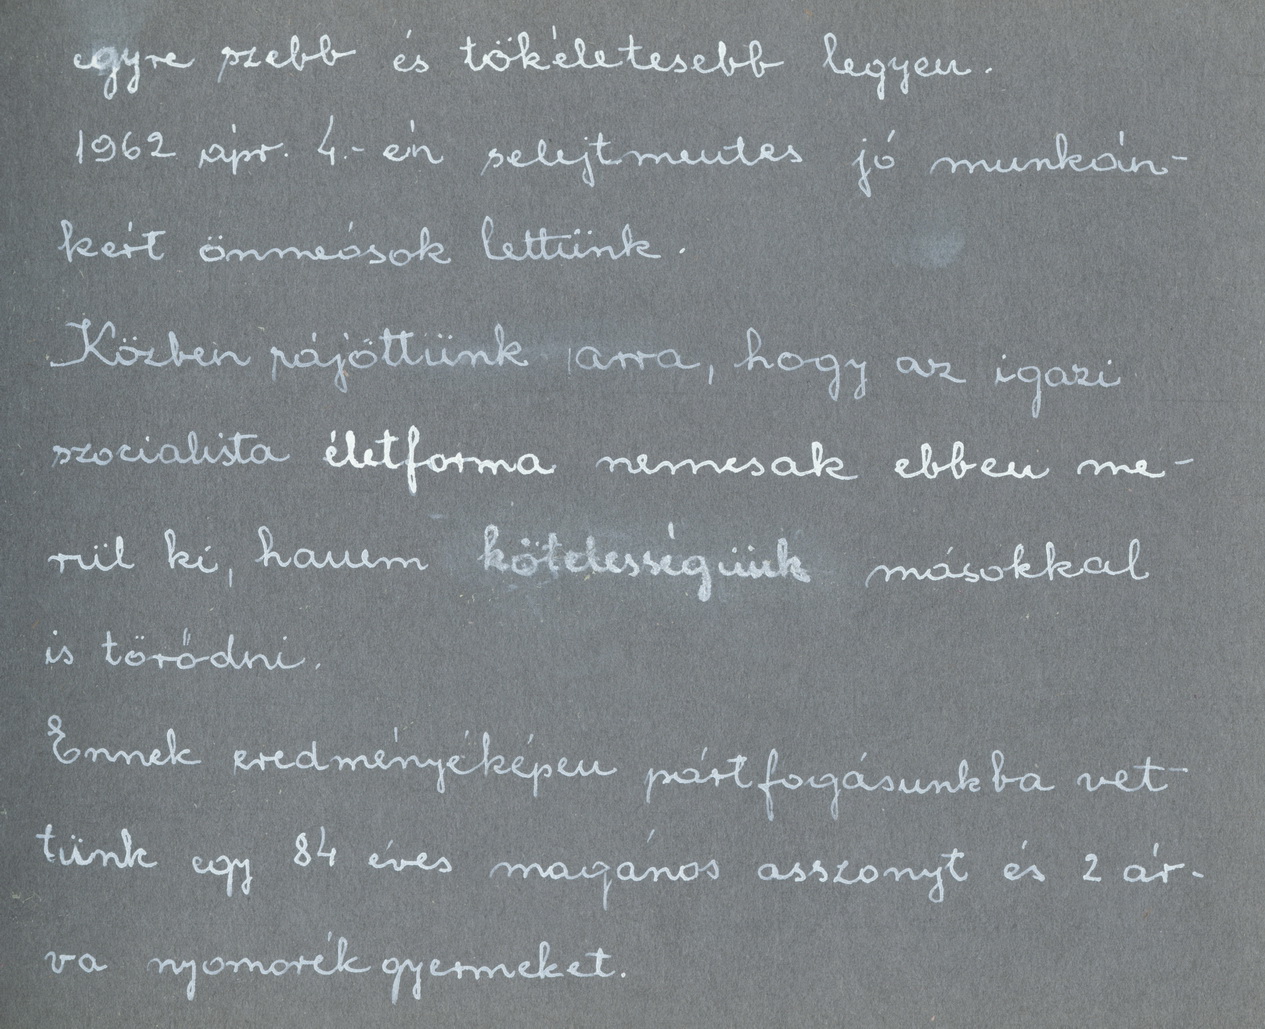 egyre szebb és tökéletesebb legyen.
1962 ápr. 4.-én selejtmentes jó munkán-
kért önmeósok lettünk.
Közben rájöttünk arra, hogy az igazi
szocialista életforma nemcsak ebben me-
rül ki, hanem kötelességünk másokkal
is törődni.
Ennek eredményéképen pártfogásunkba vet-
tünk egy 84 éves magános asszonyt és 2 ár-
va nyomorék gyermeket.